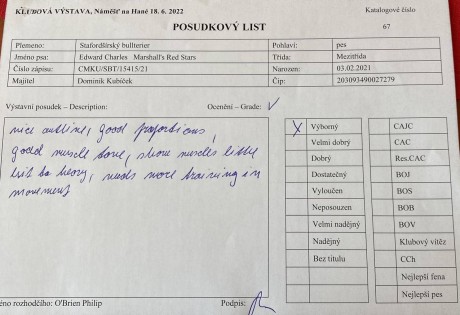 KLUBOVÁ VÝSTAVA, Náměšť na Hané 18. 6. 2022
Katalogové číslo
POSUDKOVÝ LIST
67
Plemeno: Stafordšírský bullterier Pohlaví: pes
Jméno psa: Edward Charles Marshall's Red Stars Třída: Mezitřída
Číslo zápisu: CMKU/SBT/15415/21 Narozen: 03.02.2021
Majitel Dominik Kubíček Čip: 203093490027279
Výstavní posudek – Description: Ocenění – Grade: V
nice outline, good proportions,
good muscle tone, muscles
bit to heavy, needs more training in
movement
X Výborný
Velmi dobrý
Dobrý
Dostatečný
Vyloučen
Neposouzen
Velmi nadějný
Nadějný
Bez titulu
CAJC
CAC
Res.CAC
BOJ
BOS
BOB
BOV
Klubový vítěz
CCh
Nejlepší fena
Nejlepší pes
éno rozhodčího: O'Brien Philip Podpis: